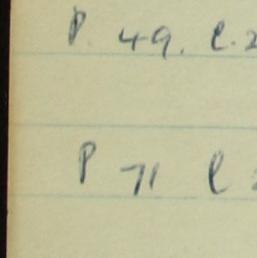 P. 49. l.
P 71 l